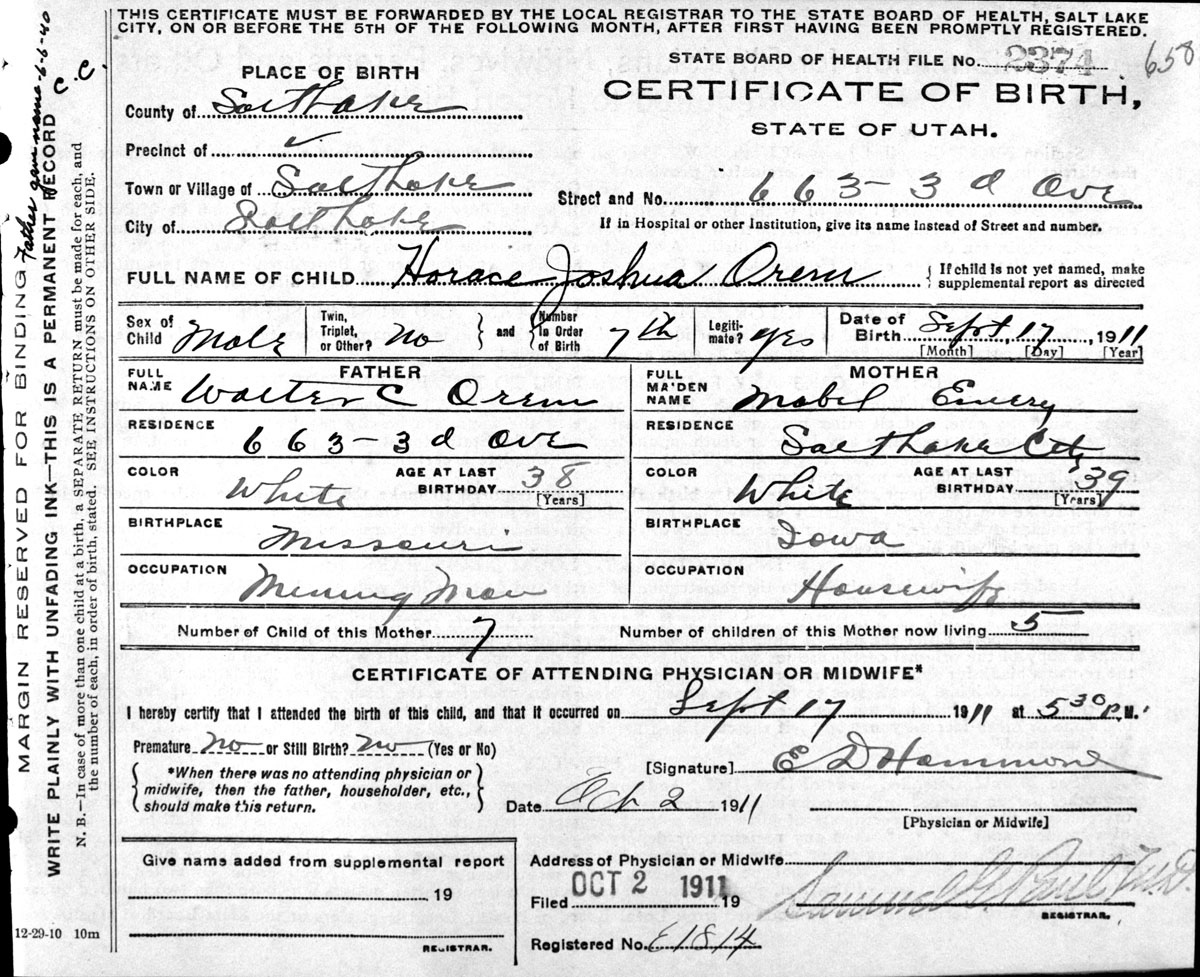 THIS CERTIFICATE MUST BE FORWARDED BY THE LOCAL REGISTRAR TO THE STATE BOARD OF HEALTH, SALT LAKE
CITY, ON OR BEFORE THE 5TH OF THE FOLLOWING MONTH, AFTER FIRST HAVING BEEN PROMPTLY REGISTERED.
STATE BOARD OF HEALTH FILE No. 2374 658
PLACE OF BIRTH
CERTIFICATE OF BIRTH,
STATE OF UTAH.
County of Salt Lake
Precinct of ✓
Town or Village of Salt Lake
Street and No. 663-3d Ave
City of Salt Lake
If in Hospital or other Institution, give its name instead of Street and number.
FULL NAME OF CHILD Horace Joshua Orem { If child is not yet named, make
supplemental report as directed
Sex of Child Male
Twin, Triplet, or Other? No } and { Number in Order of Birth 7th
Legitimate? Yes
Date of Birth Sept. 17, 1911
[Month] [Day] [Year]
FATHER
FULL NAME Walter C Orem
RESIDENCE 663-3d Ave
COLOR White AGE AT LAST BIRTHDAY 38 [Years]
BIRTHPLACE Missouri
OCCUPATION Mining Man
MOTHER
FULL MAIDEN NAME Mabel Emery
RESIDENCE Salt Lake City
COLOR White AGE AT LAST BIRTHDAY 39 [Years]
BIRTHPLACE Iowa
OCCUPATION Housewife
Number of Child of this Mother 7 Number of children of this Mother now living 5
CERTIFICATE OF ATTENDING PHYSICIAN OR MIDWIFE*
I hereby certify that I attended the birth of this child, and that it occurred on Sept 17 1911 at 5 30 P. M.
Premature No or Still Birth? No (Yes or No)
{ *When there was no attending physician or
midwife, then the father, householder, etc.,
should make this return. }
[Signature] E D Hammond
Date Oct 2 1911
[Physician or Midwife]
Give name added from supplemental report
19
REGISTRAR.
Address of Physician or Midwife
Filed OCT 2 1911 19 Samuel G Paul M.D.
REGISTRAR.
Registered No. E1814
12-29-10 10m
MARGIN RESERVED FOR BINDING
WRITE PLAINLY WITH UNFADING INK—THIS IS A PERMANENT RECORD
N. B.—In case of more than one child at a birth, a SEPARATE RETURN must be made for each, and
the number of each, in order of birth, stated. SEE INSTRUCTIONS ON OTHER SIDE.
Father 6-6-40
C C